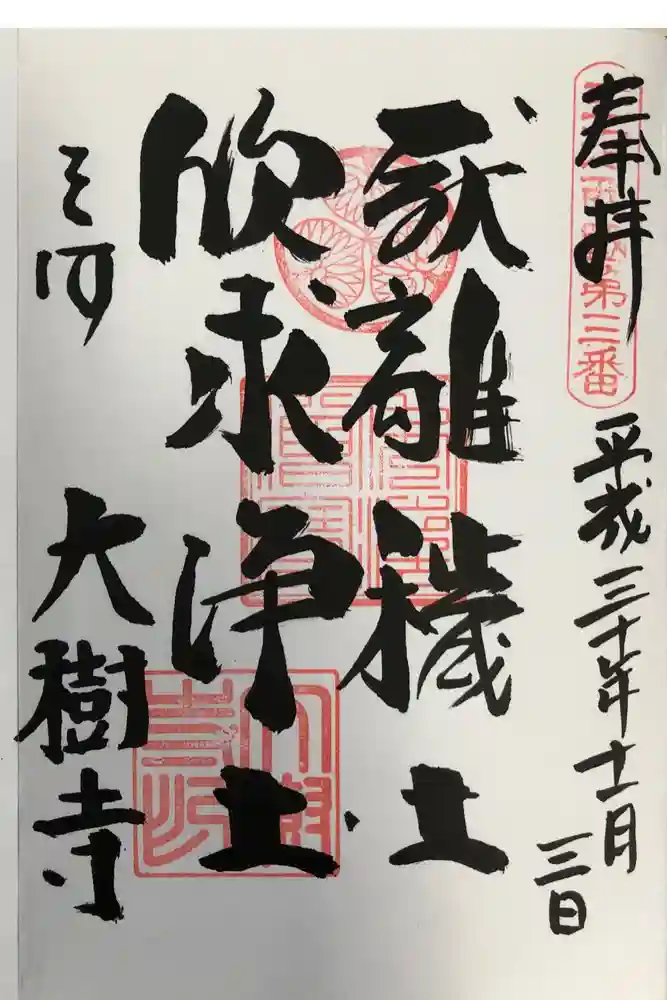 奉拝
第三番
平成三十年十二月
三日
厭離穢土
欣求浄土
三河
大樹寺